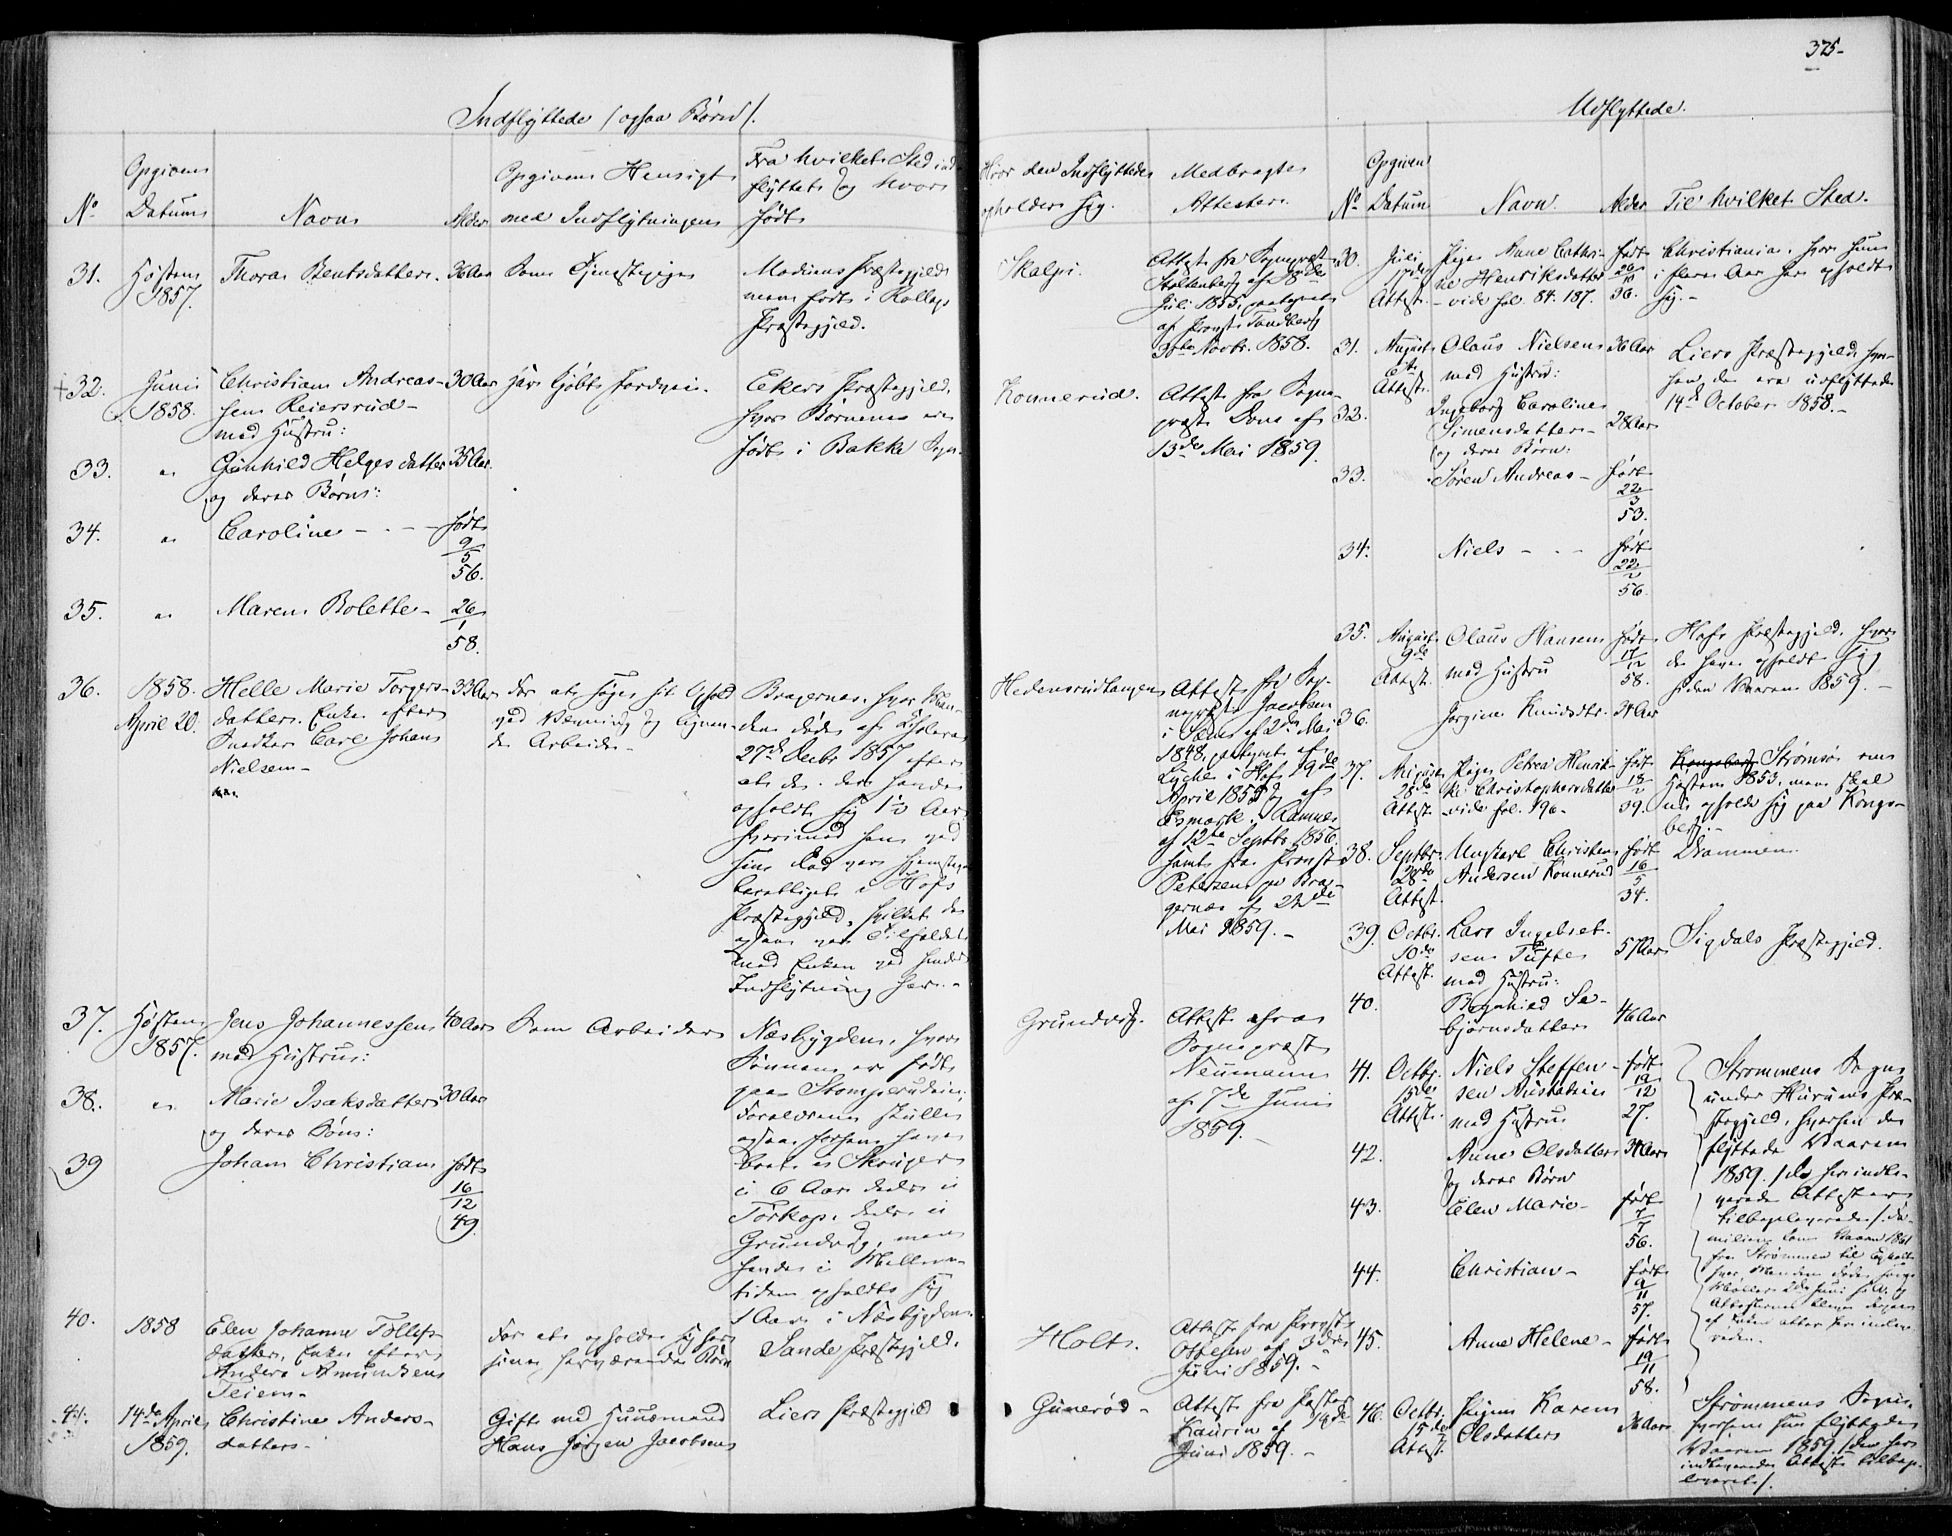 375-
Indflyttede (ogsaa Børn).
No
Opgivne Datum
Navn
Alder
Opgiven Hensigt med Indflytningen
Fra hvilket Sted indflyttet og hvor født
Hvor den Indflyttede opholder sig.
Medbragte Attester.
31.
Høsten 1857.
Thora Bentsdatter.
36 Aar
Som Tjenestepige
Modums Præstegjeld men født i Kollags Præstegjeld.
Skalpi.
Attest fra Sognepræst Stoltenberg af 8de Juli 1855, paategnet af Provst Tandberg 30te Novbr. 1858.
+32.
Juni 1858.
Christian Andreassen Reiersrud med Hustru:
30 Aar
har kjøbt Jordvei.
Ekers Præstegjeld, hvor Børnene ere født i Bakke Sogn.
Konnerud.
Attest fra Sognepræst Dons af 13de Mai 1859.
33.
"
Gunhild Helgesdatter og deres Børn:
35 Aar.
34.
"
Caroline
født 9/5 56.
35.
"
Maren Bolette
26/1 58.
36.
1858. April 20.
Helle Marie Torgersdatter. Enke efter Snedker Carl Johan Nielsen
33 Aar
For at søge sit Ophold ved Væning og lignende Arbeide
Bragernes, hvor Manden døde af Cholera 27de Decbr 1857 efter at de der havde opholdt sig 1 1/2 Aar, hvorimod han ved sin Død var hjemstavnsberettiget i Hofs Præstegjeld, hvilket da ogsaa var Tilfældet med Enken ved hendes Indflytning her.
Hedensrudtangen
Attest fra Sognepræst Jacobsen i Sande af 2de Mai 1848, paategnet af Lyche i Hof 19de April 1855 og af Esmark i Ramnes af 12te Septbr 1856 samt fra Provst Petersen paa Bragernes af 24de Mai 1859.
37.
Høsten 1857.
Jens Johannessen med Hustru:
40 Aar
Som Arbeider
Næsbygden, hvor Sønnen er født paa Stomperudeie; Forældrene skulle ogsaa forhen have boet i Skouger i 6 Aar deels i Torkop, deels i Grundvig, men havde i Mellemtiden opholdt sig 1 Aar i Næsbygden.
Grundvig.
Attest fra Sognepræst Neumann af 7de Juni 1859.
38.
"
Marie Isaksdatter og deres Søn:
30 Aar
39
Johan Christian
født 16/12 49.
40.
1858
Elen Johanne Tollefsdatter, Enke efter Anders Amundsen Teien
For at opholde sig hos sine herværende Børn
Sande Præstegjeld.
Holt.
Attest fra Provst Ottesen af 3die Juni 1859.
41.
14de April 1859.
Christine Andersdatter
Gift med Huusmand Hans Jørgen Jacobsen
Liers Præstegjeld
Gunerød
Attest fra Pastor Kaurin af 19de Juni 1859.
Udflyttede.
No
Opgiven Datum
Navn.
Alder
Til hvilket Sted.
30.
Juli 17de Attest.
Pige Anne Cathrine Henriksdatter vide fol. 84. 187.
født 26/10 36.
Christiania, hvor hun i flere Aar har opholdt sig.
31.
August Attest.
Olaus Nielsen med Hustru:
36 Aar
Liers Præstegjeld, hvorhen de ere udflyttede 14de October 1858.
32.
Ingeborg Caroline Simensdatter og deres Børn:
28 Aar
33.
Søren Andreas
født 22/3 53.
34.
Niels
født 22/2 56.
35.
August 9de Attest.
Olaus Hansen med Hustru
født 17/12 58.
Hofs Præstegjeld, hvor de have opholdt sig siden Vaaren 1859.
36.
Jørgine Knudsdtr.
31 Aar
37.
August 28de Attest.
Pige Petrea Henrikke Christophersdatter vide fol. 196.
født 18/2 39.
Kongsberg Strømsø om Høsten 1853, men skal nu opholde sig paa Kongsberg.
38.
Septbr. 28de Attest.
Ungkarl Christen Andersen Konnerud
født 16/5 34.
Drammen.
39.
Octbr. 10de Attest.
Lars Ingebretsen Tufte med Hustru:
57 Aar
Sigdals Præstegjeld.
40.
Ragnhild Sebjørnsdatter
46 Aar
41.
Octbr. 15de Attest.
Niels Steffensen Nustadeie med Hustru
født 19/12 27.
Strømmens Sogn under Hurums Præstegjeld, hvorhen de flyttede Vaaren 1859. (de her indleverede Attester tilbageleverede). Familien kom Vaaren 1861 fra Strømmen til
42.
Anne Olsdatter og deres Børn
31 Aar
43.
Elen Marie
født 7/7 56.
44.
Christian
født 9/11 57.
45.
Anne Helene
født 19/11 58.
46.
Octbr. 15de Attest.
Pigen Karen Olsdatter
36 Aar
Strømmens Sogn, hvorhen hun flyttede Vaaren 1859. (den her indleverede Attest tilbageleveret).